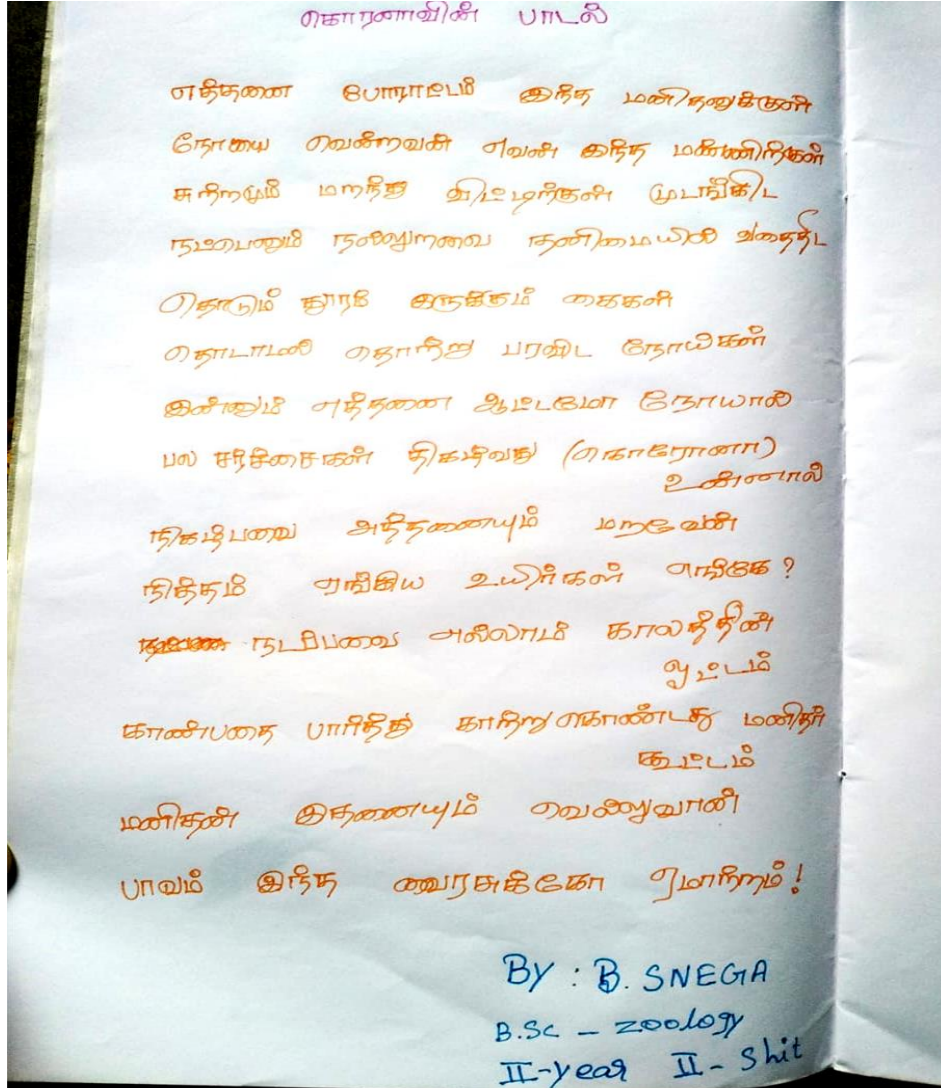 கொரனாவின் பாடல்
எத்தனை போராட்டம் இந்த மனிதனுக்குள்
நோயை வென்றவன் எவன் இந்த மண்ணிற்குள்
சுற்றமும் மறந்து விட்டிற்குள் முடங்கிட
நட்பெனும் நல்லுறவை தனிமையில் வதைத்திட
தொடும் தூரமே இருக்கும் கைகள்
தொடாமல் தொற்று பரவிட நோய்கள்
இன்னும் எத்தனை ஆட்டமோ நோயால்
பல சர்ச்சைகள் திகழ்வது (கொரோனா)
உன்னால்
நிகழ்பவை அத்தனையும் மறவேன்
நித்தம் ஏங்கிய உயிர்கள் எங்கே?
நடப்பவை எல்லாம் காலத்தின்
ஓட்டம்
காண்பதை பார்த்து காற்றுகொண்டது மனிதர்
கூட்டம்
மனிதன் இதனையும் வெல்லுவான்
பாவம் இந்த வைரசுக்கோ ஏமாற்றம்!
BY : B. SNEGA
B.Sc – zoology
II-year II-Shit